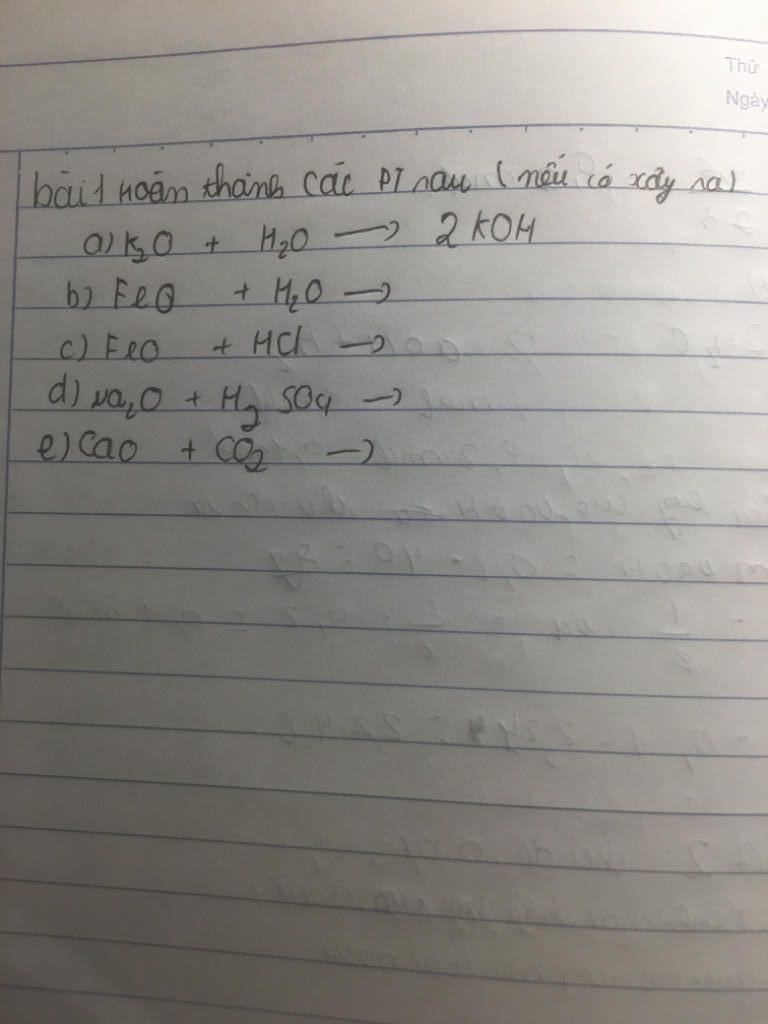 Thứ
Ngày
bài 1 Hoàn thành các PT sau (nếu có xảy ra)
a) K₂O + H₂O → 2 KOH
b) FeO + H₂O →
c) FeO + HCl →
d) Na₂O + H₂SO₄ →
e) CaO + CO₂ →